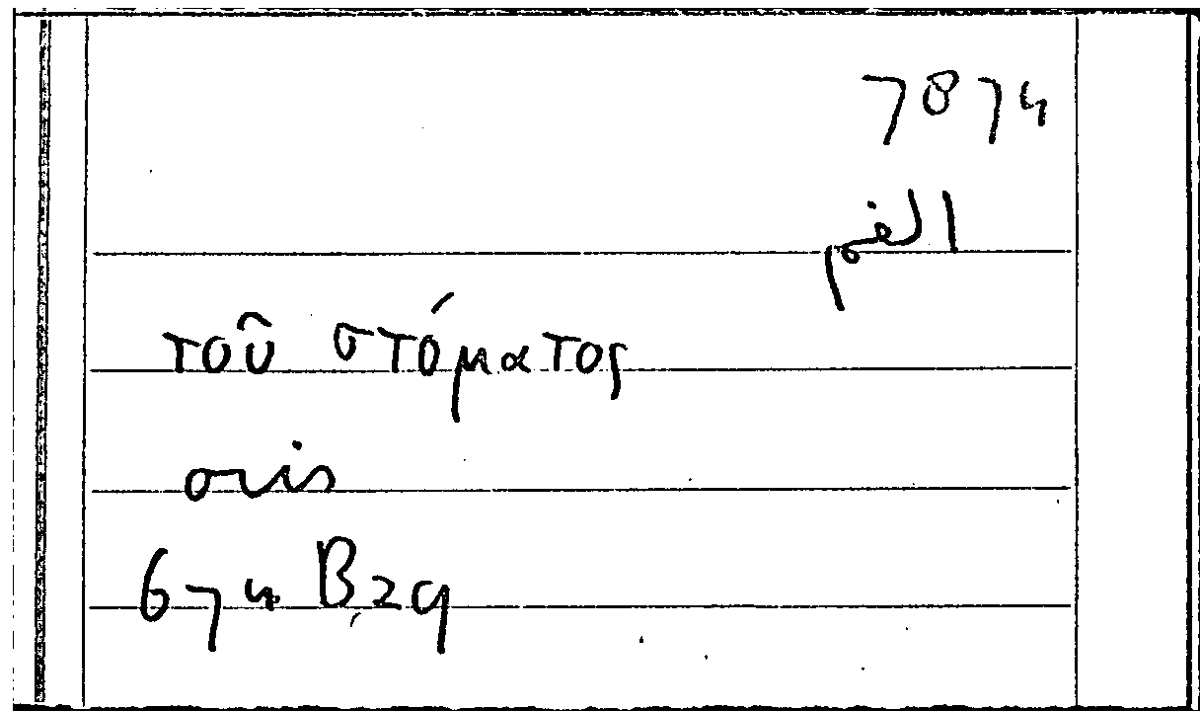 7874
الفم
τοῦ στόματος
oris
674 B29